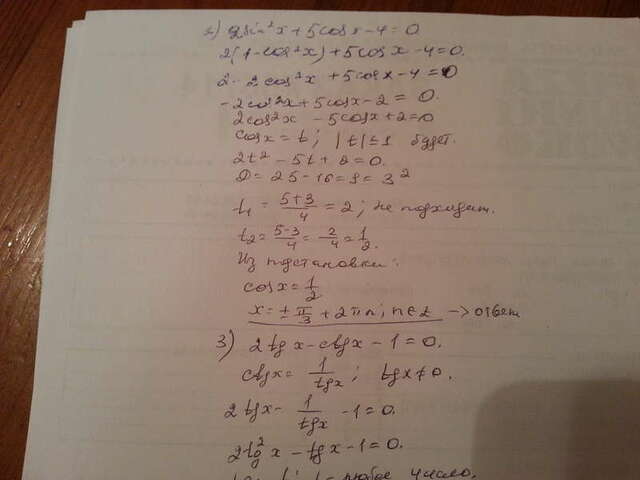 2) 2sin²x + 5cosx - 4 = 0
2(1-cos²x) + 5cosx - 4 = 0.
2 - 2cos²x + 5cosx - 4 = 0
-2cos²x + 5cosx - 2 = 0.
2cos²x - 5cosx + 2 = 0
cosx = t; |t| ≤ 1 будет.
2t² - 5t + 2 = 0.
D = 25 - 16 = 9 = 3²
t₁ = (5+3)/4 = 2; не подходит.
t₂ = (5-3)/4 = 2/4 = 1/2.
Из подстановки:
cosx = 1/2
x = ± π/3 + 2πn; n ∈ Z → ответ
3) 2tgx - ctgx - 1 = 0.
ctgx = 1/tgx; tgx ≠ 0.
2tgx - 1/tgx - 1 = 0.
2tg²x - tgx - 1 = 0.
любое число.